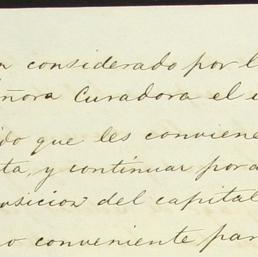 considerado por l
ñora Curadora el i
ido que les conviene
ta, y continuar por a
sicion del capital
o conveniente par